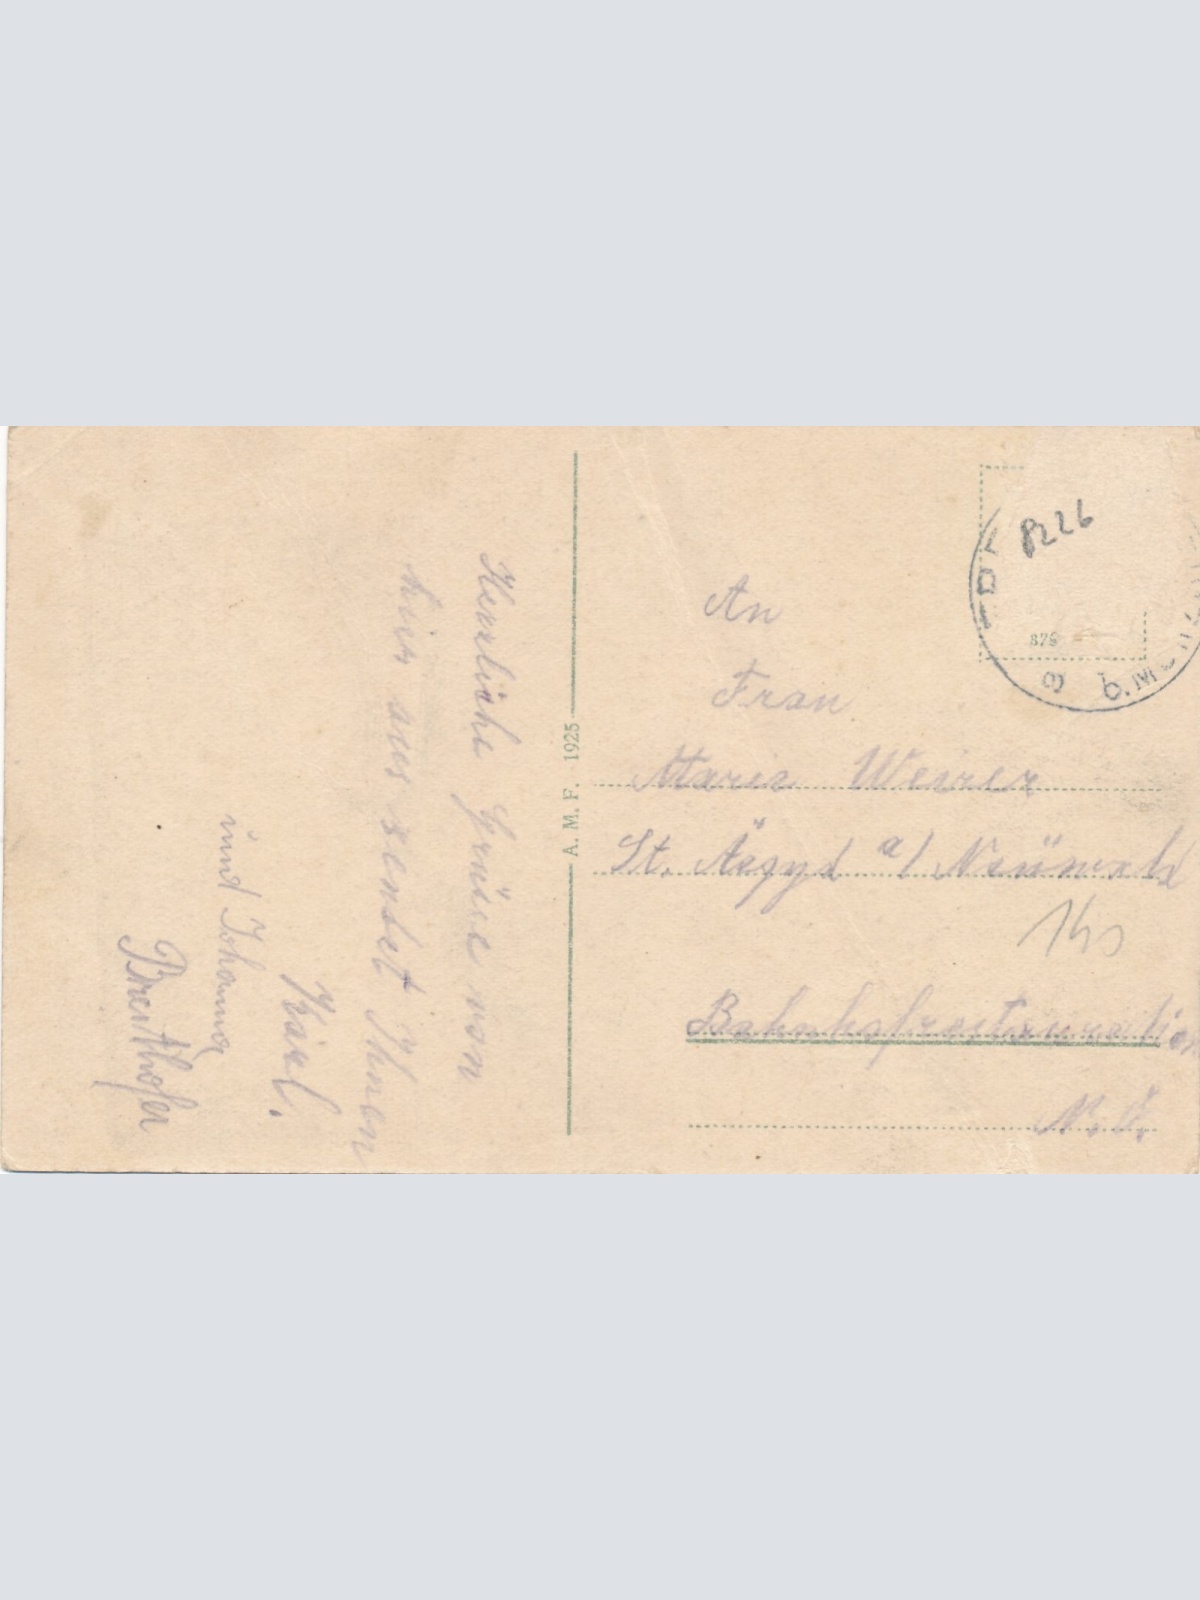 Herzliche Grüsse von
hier aus sendet Ihnen
Karl.
und Johanna
Breithofer
A. M. F. 1925
An
Frau
Marie Weirer
St. Äegyd a/ Neüwald
Bahnhofrestauration
N. Ö.
P226